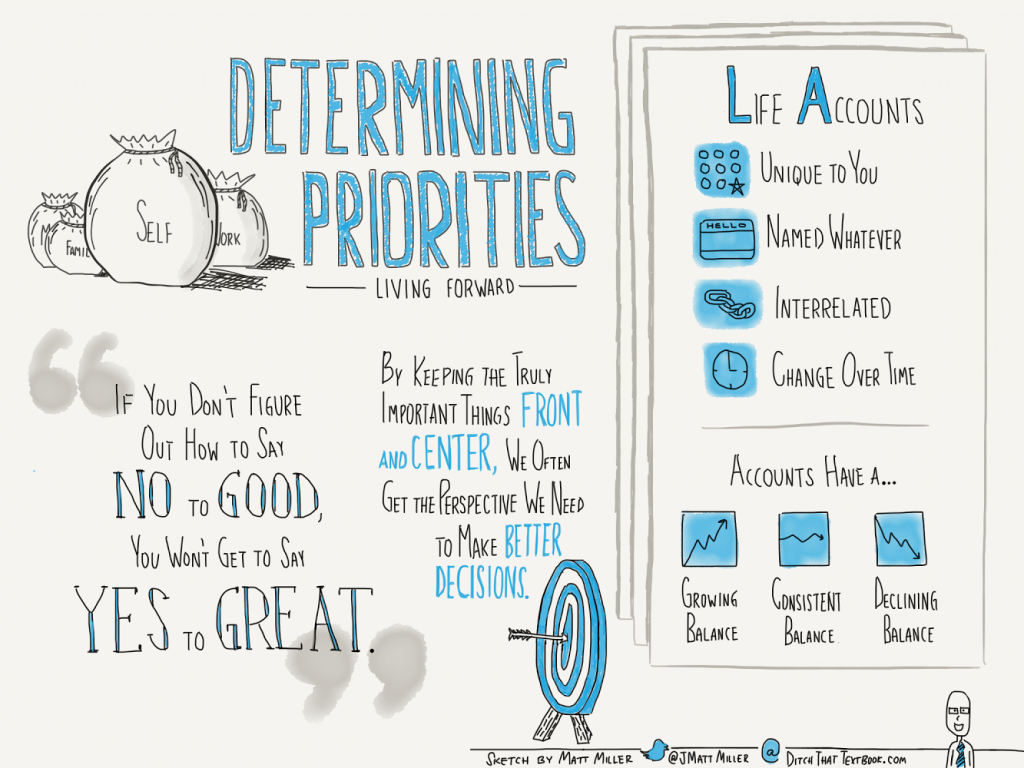 DETERMINING
PRIORITIES
LIVING FORWARD
SELF
"IF YOU DON'T FIGURE
OUT HOW TO SAY
NO TO GOOD,
YOU WON'T GET TO SAY
YES TO GREAT."
BY KEEPING THE TRULY
IMPORTANT THINGS FRONT
AND CENTER, WE OFTEN
GET THE PERSPECTIVE WE NEED
TO MAKE BETTER
DECISIONS.
LIFE ACCOUNTS
UNIQUE TO YOU
HELLO
NAMED WHATEVER
INTERRELATED
CHANGE OVER TIME
ACCOUNTS HAVE A...
GROWING
BALANCE
CONSISTENT
BALANCE
DECLINING
BALANCE
SKETCH BY MATT MILLER @JMATTMILLER @ DITCHTHATTEXTBOOK.COM